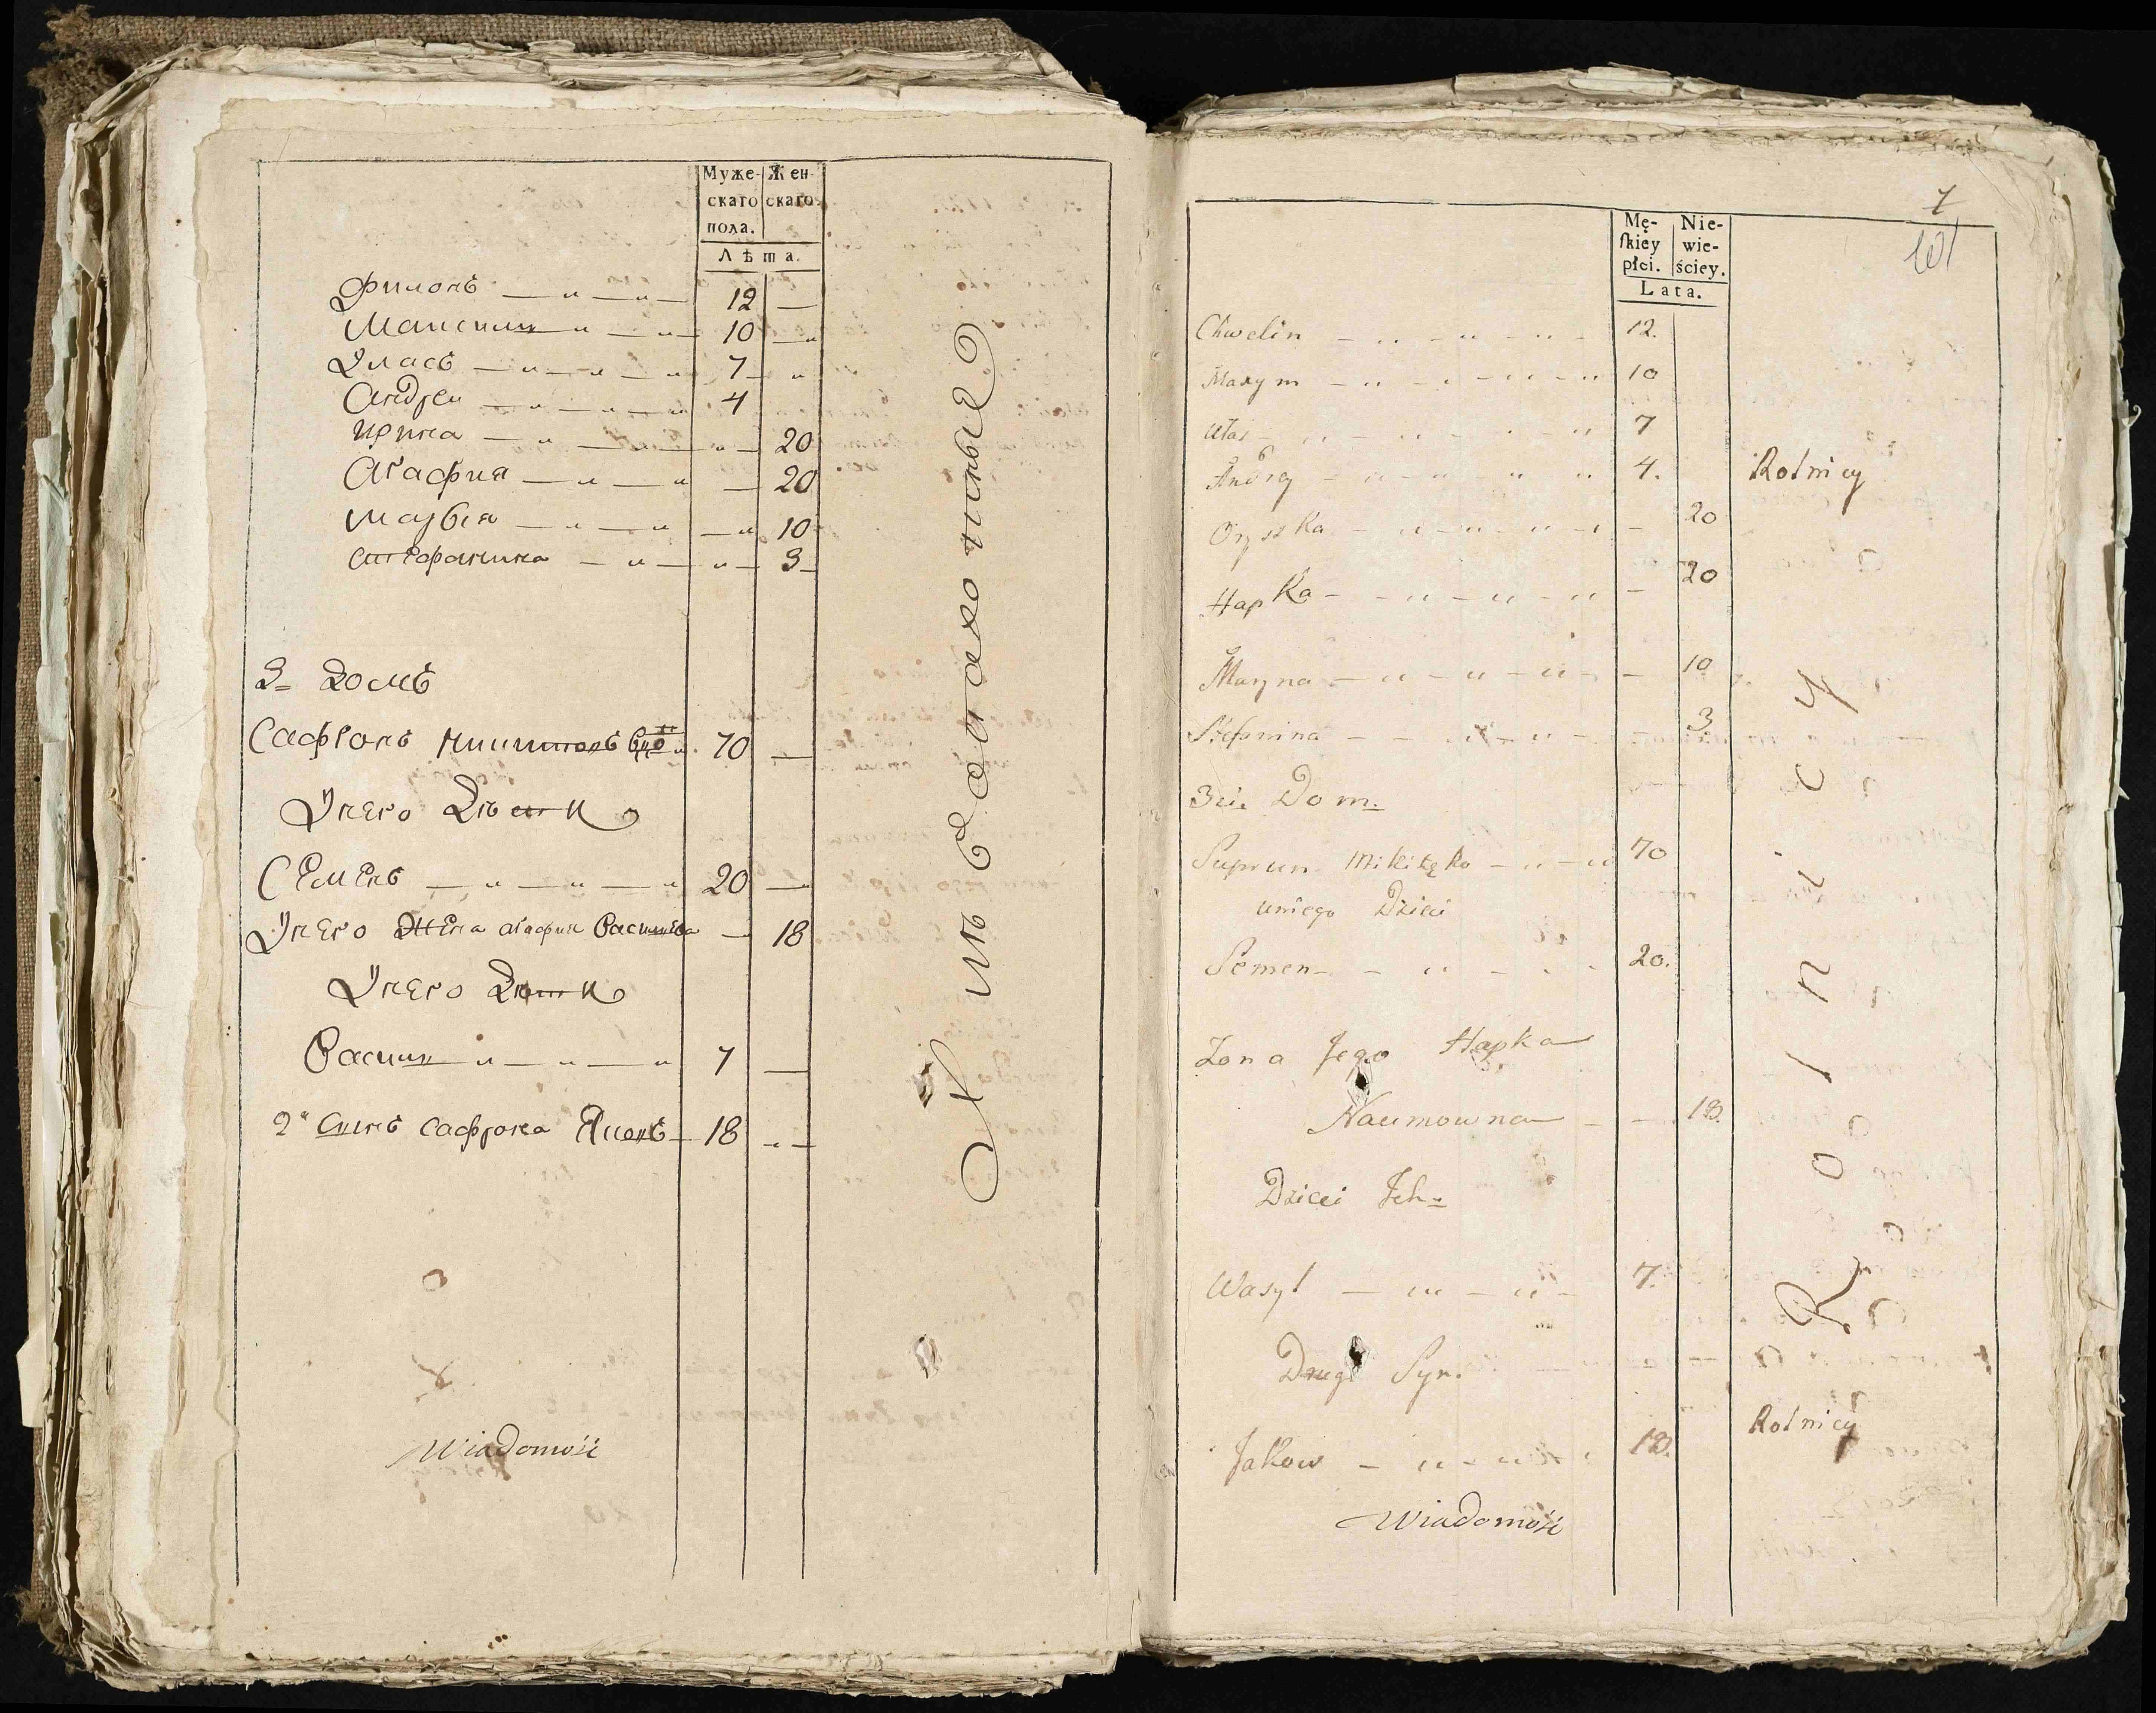 Муже-
скаго
пола.
Жен-
скаго.
Лѣта.
Филонъ — „ — „ — 12 —
Максимъ „ — „ — 10 — „
Уласъ — „ — „ — „ 7 — „
Андреи — „ — „ — „ 4
Ирина — „ — — „ — 20
Агафия — „ — „ — 20
Марвѣя — „ — „ — „ 10
Стефанина — „ — „ — 3 —
3 = Домъ
Сафронъ 70 —
У него Дѣти
Семенъ — „ — „ — „ 20 —
У него жена агафия — 18
У него Дѣти
Васил „ — „ — „ 7 —
2й Сынъ сафрона Яковъ — 18 „ —
Wiadomość
Mę-
ſkiey
płci.
Nie-
wie-
ściey.
Lata.
7
Chwelin — „ — „ — „ — 12.
Maxym — „ — „ — „ — „ 10
Ułas — „ — „ — „ — „ 7
Andrey — „ — „ — „ — „ 4.
Rolnicy
Oryszka — „ — „ — „ — „ — 20
Hapka — „ — „ — „ — 20
Maryna — „ — „ — „ — — 10
Stefanina — — „ — „ — — 3.
3ci. Dom.
Suprun Mikitęko — „ — „ 70
uniego Dzieci
Semen — — „ — „ 20.
Zona Jego Hapka
Naumowna — — 18.
Dzieci Ich =
Wasyl — „ — „ — 7.
Drugi Syn.
Jakow — „ — „ 18.
Rolnicy
Wiadomość
Rolnicy